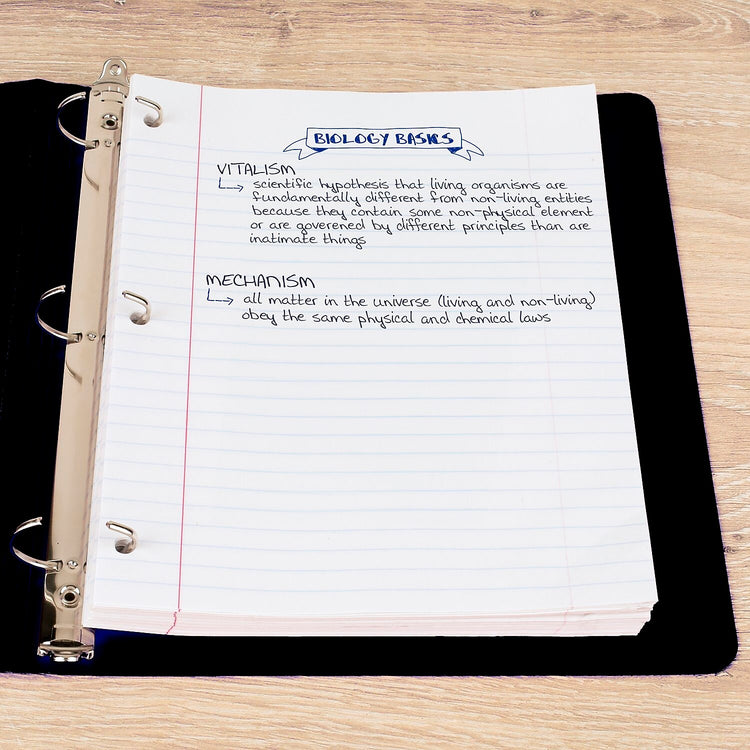 BIOLOGY BASICS
VITALISM
scientific hypothesis that living organisms are
fundamentally different from non-living entities
because they contain some non-physical element
or are goverened by different principles than are
inatimate things
MECHANISM
all matter in the universe (living and non-living)
obey the same physical and chemical laws